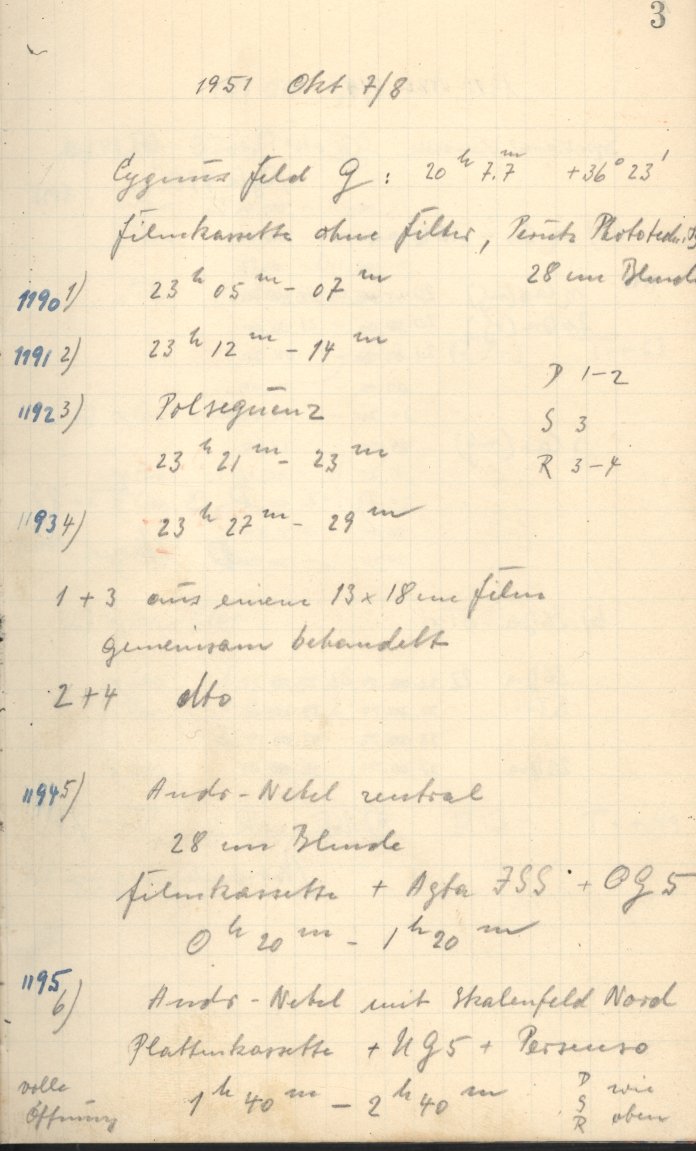 3
1951 Okt 7/8
Cygnus Feld G: 20 h 7.7 m +36° 23'
Filmkassette ohne Filter, Perutz Phototechn.
28 cm Blende
1190 1) 23 h 05 m - 07 m
1191 2) 23 h 12 m - 14 m
D 1-2
1192 3) Polsequenz
S 3
23 h 21 m - 23 m
R 3-4
1193 4) 23 h 27 m - 29 m
1 + 3 aus einem 13 x 18 cm Film
gemeinsam behandelt
2 + 4 dto
1194 5) Andr-Nebel zentral
28 cm Blende
Filmkassette + Agfa ISS + OG 5
0 h 20 m - 1 h 20 m
1195 6) Andr-Nebel mit Skalenfeld Nord
Plattenkassette + UG5 + Persenso
volle Öffnung
1 h 40 m - 2 h 40 m
D
S wie
R oben